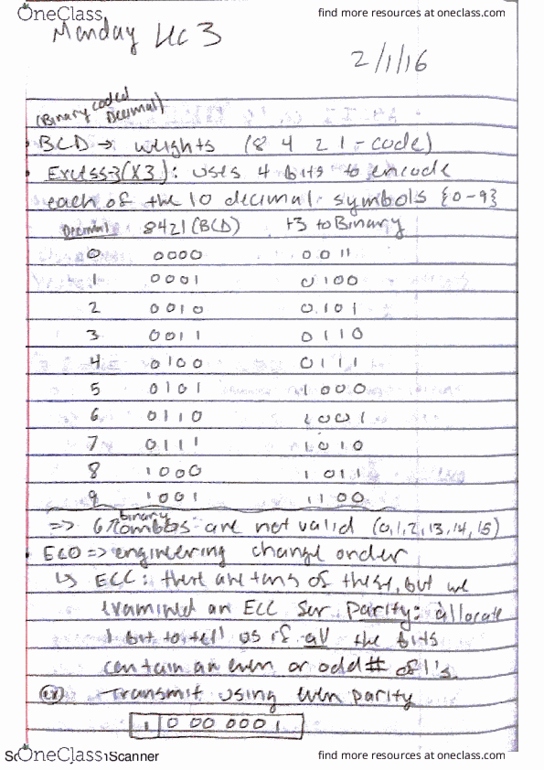 OneClass
find more resources at oneclass.com
Monday Lec 3
2/1/16
(Binary coded Decimal)
• BCD → weights (8 4 2 1 - code)
• Excess-3(X3): uses 4 bits to encode
each of the 10 decimal symbols {0-9}
Decimal 8421(BCD) +3 to Binary
0 0000 0011
1 0001 0100
2 0010 0101
3 0011 0110
4 0100 0111
5 0101 1000
6 0110 1001
7 0111 1010
8 1000 1011
9 1001 1100
=> 6 binary combos are not valid (0,1,2,13,14,15)
• ECO => engineering change order
↳ ECC: there are tons of these, but we
examined an ECC for parity: allocate
1 bit to tell us if all the bits
contain an even or odd # of 1's.
(ex) Transmit using even parity
1 | 0 00 000 1
OneClass
Scanner
find more resources at oneclass.com